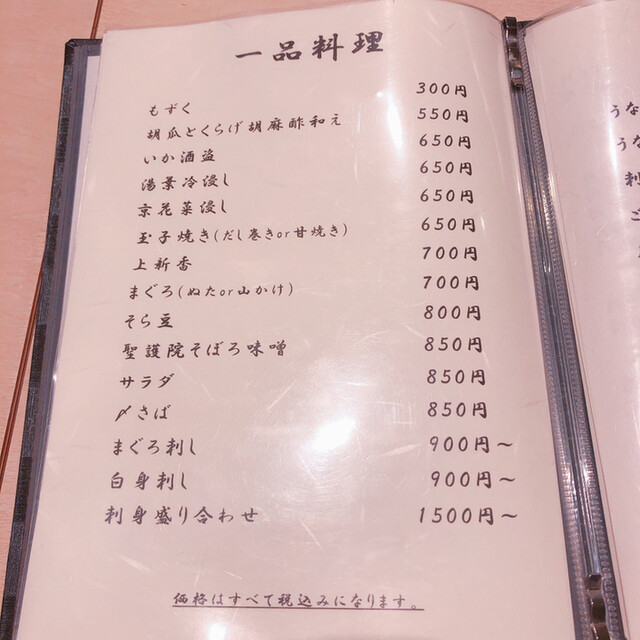 一品料理
もずく 300円
胡瓜とくらげ胡麻酢和え 550円
いか酒盗 650円
湯葉冷浸し 650円
京花菜浸し 650円
玉子焼き(だし巻きor甘焼き) 650円
上新香 700円
まぐろ(ぬたor山かけ) 700円
そら豆 800円
聖護院そぼろ味噌 850円
サラダ 850円
〆さば 850円
まぐろ刺し 900円～
白身刺し 900円～
刺身盛り合わせ 1500円～
価格はすべて税込みになります。
うな
うな
刺